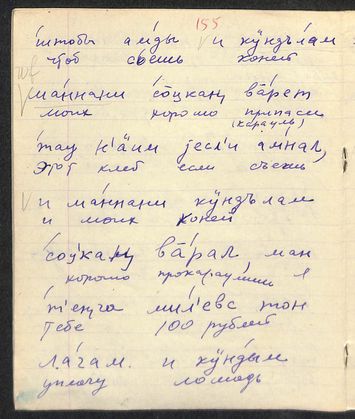 155
штобы амды и кӱндъ́лам
чтоб съешь коней
ма́ннани со̄цкан, ва̄рет
моих хорошо припаси
(караулъ)
тау н'ӓим jесл'и амнал,
этот хлеб если съешь
и ма́ннани кӱндъ лам
и моих коней
со̄цкан, ва̄рал, ман
хорошо прокараулиш я
т'енга ми́л'евс тон
тебе 100 рублей
ла́чам. и кӱнды́м
уплачу лошадь